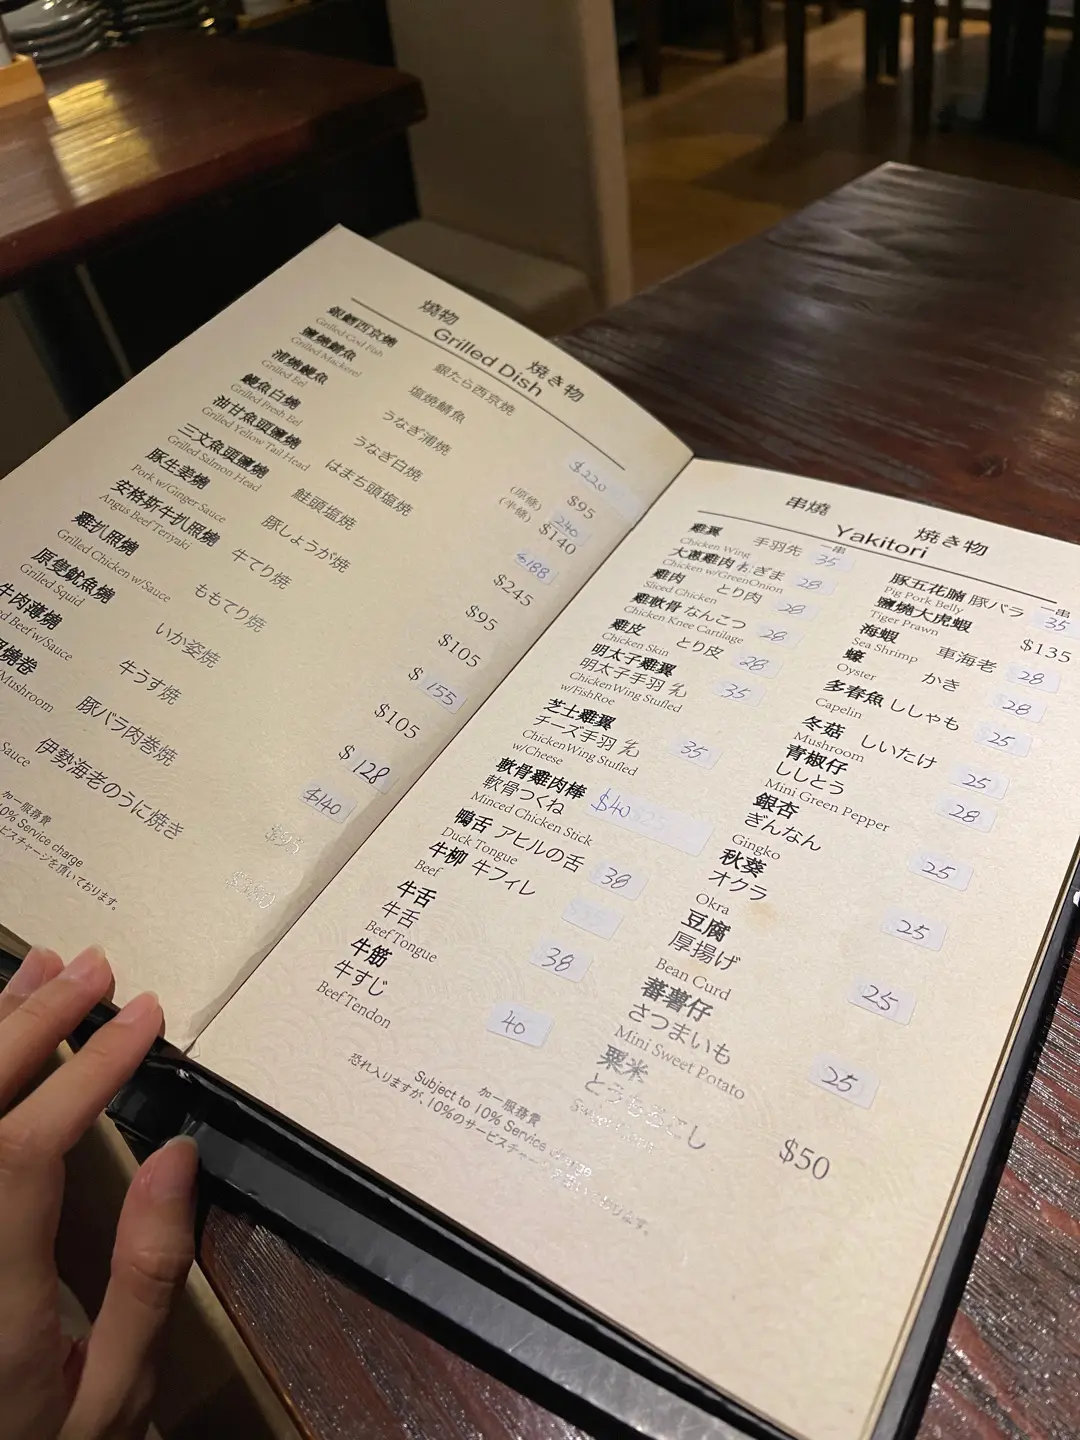 燒物 焼き物
Grilled Dish
銀鱈西京燒 銀たら西京焼 $220
Grilled Cod Fish
鹽燒鯖魚 塩焼鯖魚 $95
Grilled Mackerel
蒲燒鰻魚 うなぎ蒲焼 (原條) 240
Grilled Eel (半條) $140
鰻魚白燒 うなぎ白焼 $188
Grilled Fresh Eel
油甘魚頭鹽燒 はまち頭塩焼 $245
Grilled Yellow Tail Head
三文魚頭鹽燒 鮭頭塩焼 $95
Grilled Salmon Head
豚生姜燒 豚しょうが焼 $105
Pork w/Ginger Sauce
安格斯牛扒照燒 牛てり焼 $155
Angus Beef Teriyaki
雞扒照燒 ももてり焼 $105
Grilled Chicken w/Sauce
原隻魷魚燒 いか姿焼 $128
Grilled Squid
牛肉薄燒 牛うす焼 $140
Beef w/Sauce
燒卷 豚バラ肉巻焼 $95
Mushroom
伊勢海老のうに焼き
Sauce
加一服務費
10% Service charge
ビスチャージを頂いております。
串燒 焼き物
Yakitori
一串
雞翼 手羽先 35
Chicken Wing
大蔥雞肉 ねぎま 28
Chicken w/GreenOnion
雞肉 とり肉 28
Sliced Chicken
雞軟骨 なんこつ 28
Chicken Knee Cartilage
雞皮 とり皮 28
Chicken Skin
明太子雞翼
明太子手羽先 35
ChickenWing Stufled
w/FishRoe
芝士雞翼
チーズ手羽先 35
ChickenWing Stufled
w/Cheese
軟骨雞肉棒
軟骨つくね $40
Minced Chicken Stick
鴨舌 アヒルの舌 38
Duck Tongue
牛柳 牛フィレ
Beef
牛舌
牛舌 38
Beef Tongue
牛筋
牛すじ 40
Beef Tendon
一串
豚五花腩 豚バラ 35
Pig Pork Belly
鹽燒大虎蝦 $135
Tiger Prawn
海蝦 車海老 28
Sea Shrimp
蠔 かき 28
Oyster
多春魚 ししゃも 25
Capelin
冬菇 しいたけ 25
Mushroom
青椒仔
ししとう 28
Mini Green Pepper
銀杏
ぎんなん 25
Gingko
秋葵
オクラ 25
Okra
豆腐
厚揚げ 25
Bean Curd
蕃薯仔
さつまいも 25
Mini Sweet Potato
粟米
とうもろこし $50
加一服務費
Subject to 10% Service charge
恐れ入りますが、10%のサービスチャージを頂いております。